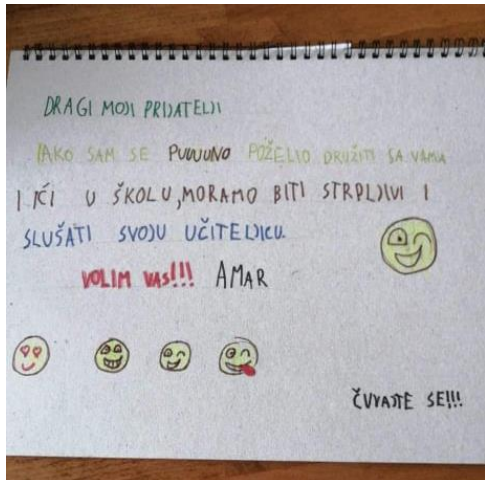 DRAGI MOJI PRIJATELJI
IAKO SAM SE PUUUNO POŽELIO DRUŽITI SA VAMA
I IĆI U ŠKOLU, MORAMO BITI STRPLJIVI I
SLUŠATI SVOJU UČITELJICU.
VOLIM VAS!!! AMAR
ČUVAJTE SE!!!